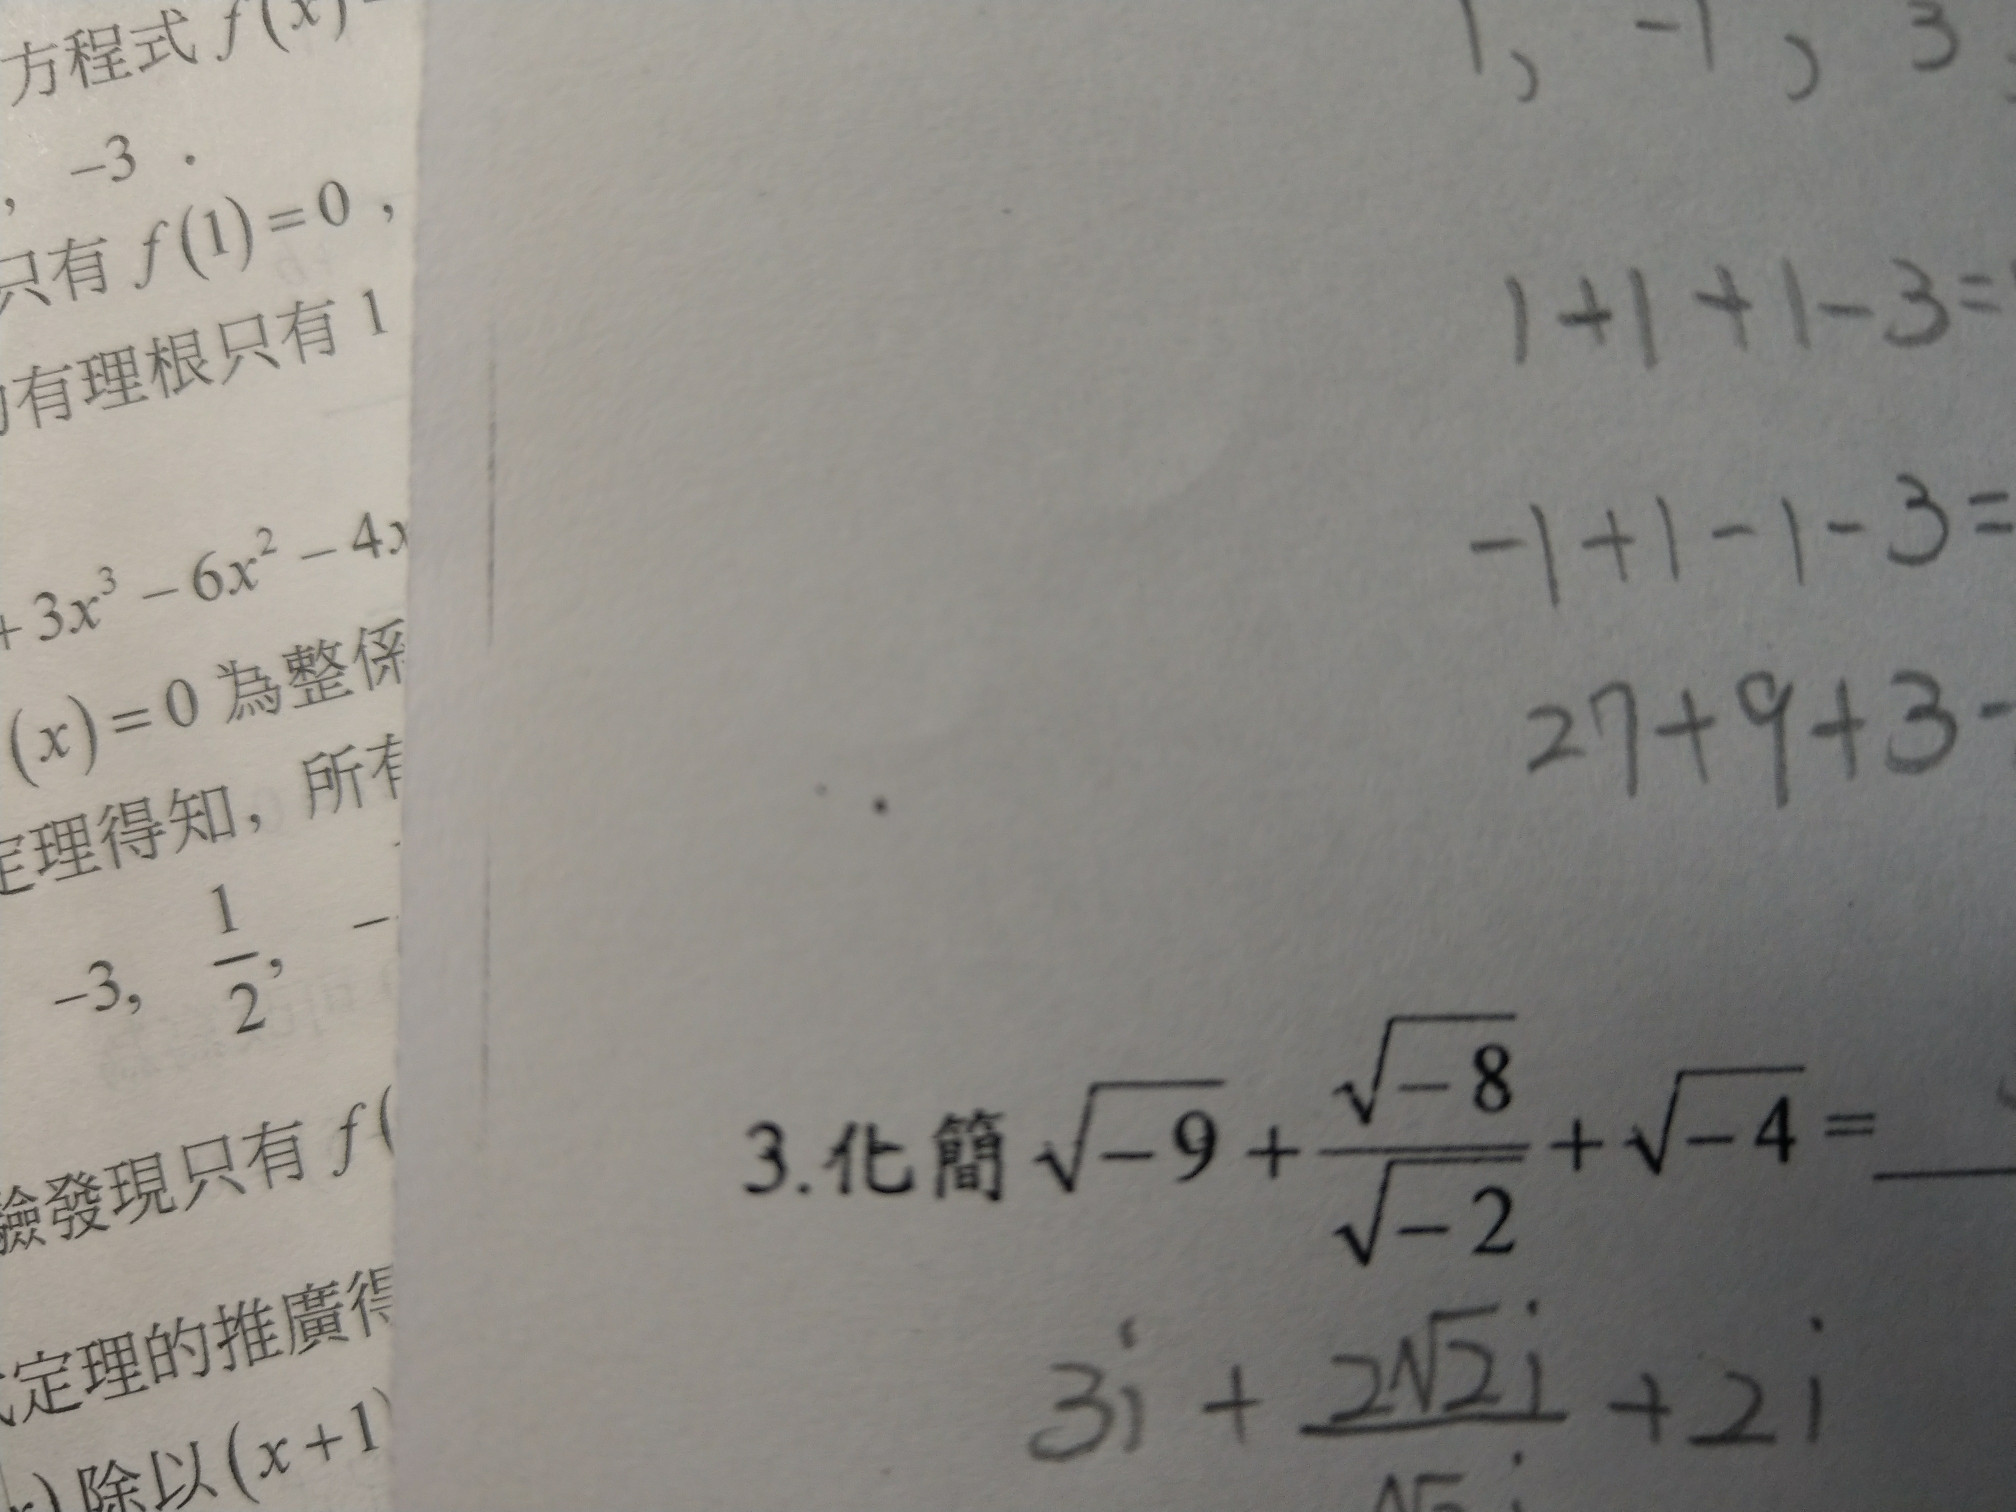 方程式 f(x)
, -3 .
只有 f(1)=0 ,
有理根只有 1
+ 3x³ - 6x² - 4x
(x)=0 為整係
定理得知, 所有
-3, 1/2, -
驗發現只有 f(
定理的推廣得
除以 (x+1)
1, -1, 3
1+1+1-3=
-1+1-1-3=
27+9+3-
3.化簡 √-9 + √-8/√-2 + √-4 =
3i + 2√2i/√2i + 2i